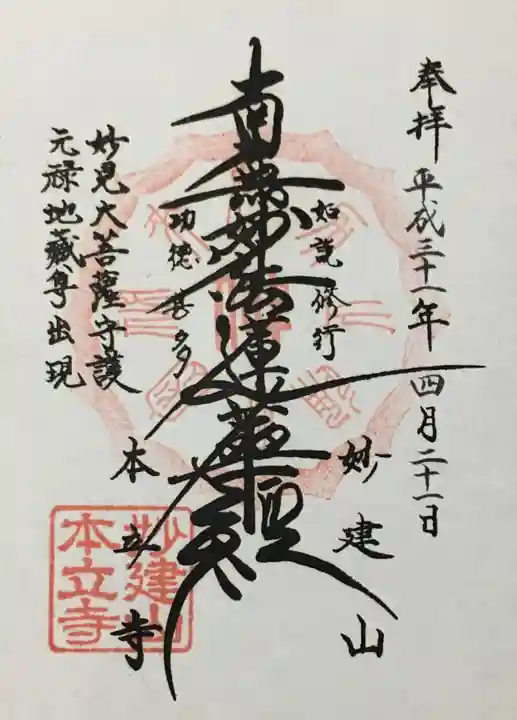 奉拝 平成三十一年 四月二十一日
如説修行
妙建山
南無妙法蓮華経
功徳甚多
本立寺
妙見大菩薩守護
元禄地蔵尊出現
妙建山
本立寺